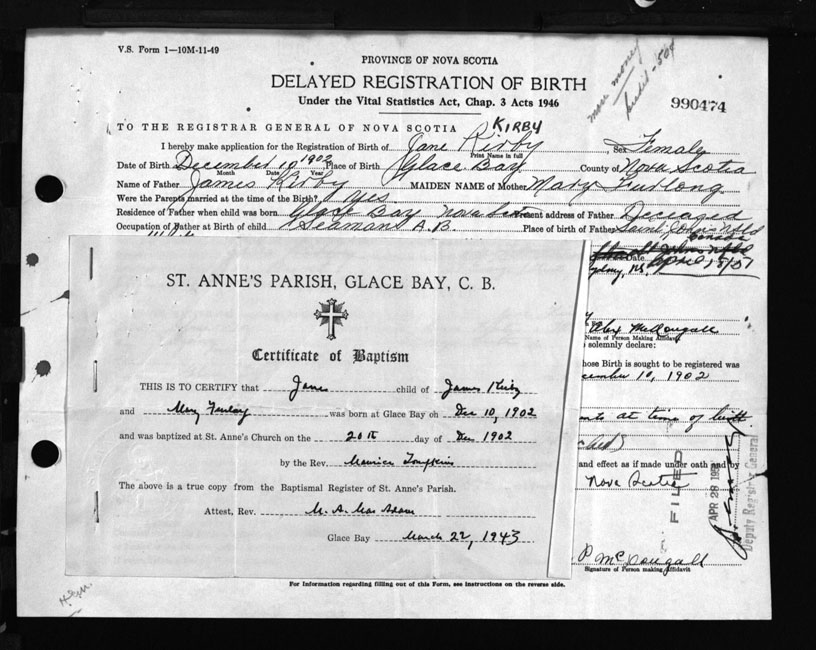 V.S. Form 1—10M-11-49
PROVINCE OF NOVA SCOTIA
DELAYED REGISTRATION OF BIRTH
Under the Vital Statistics Act, Chap. 3 Acts 1946
more money
990474
TO THE REGISTRAR GENERAL OF NOVA SCOTIA KIRBY
I hereby make application for the Registration of Birth of Jane Kirby Sex Female
Print Name in full
Date of Birth December 10 1902 Place of Birth Glace Bay County of Nova Scotia
Month Date Year
Name of Father James Kirby MAIDEN NAME of Mother Mary Furlong
Were the Parents married at the time of the Birth? Yes
Residence of Father when child was born Glace Bay Nova Scotia Present address of Father Deceased
Occupation of Father at Birth of child Seaman A.B. Place of birth of Father Saint John's Nfld
Canada
Date April
Sydney, N.S.
ST. ANNE'S PARISH, GLACE BAY, C. B.
Certificate of Baptism
THIS IS TO CERTIFY that Jane child of James Kirby
and Mary Furlong was born at Glace Bay on Dec 10, 1902
and was baptized at St. Anne's Church on the 20th day of Dec 1902
by the Rev. Maurice Tompkins
The above is a true copy from the Baptismal Register of St. Anne's Parish.
Attest, Rev. M. A. Mac Adam
Glace Bay March 22, 1943
Alex McDougall
Name of Person Making Affidavit
solemnly declare:
hose Birth is sought to be registered was
cember 10, 1902
at time of birth.
and effect as if made under oath and by
Nova Scotia
FILED
APR 28
Deputy Registrar General
P McDougall
Signature of Person making Affidavit
For information regarding filling out of this Form, see instructions on the reverse side.